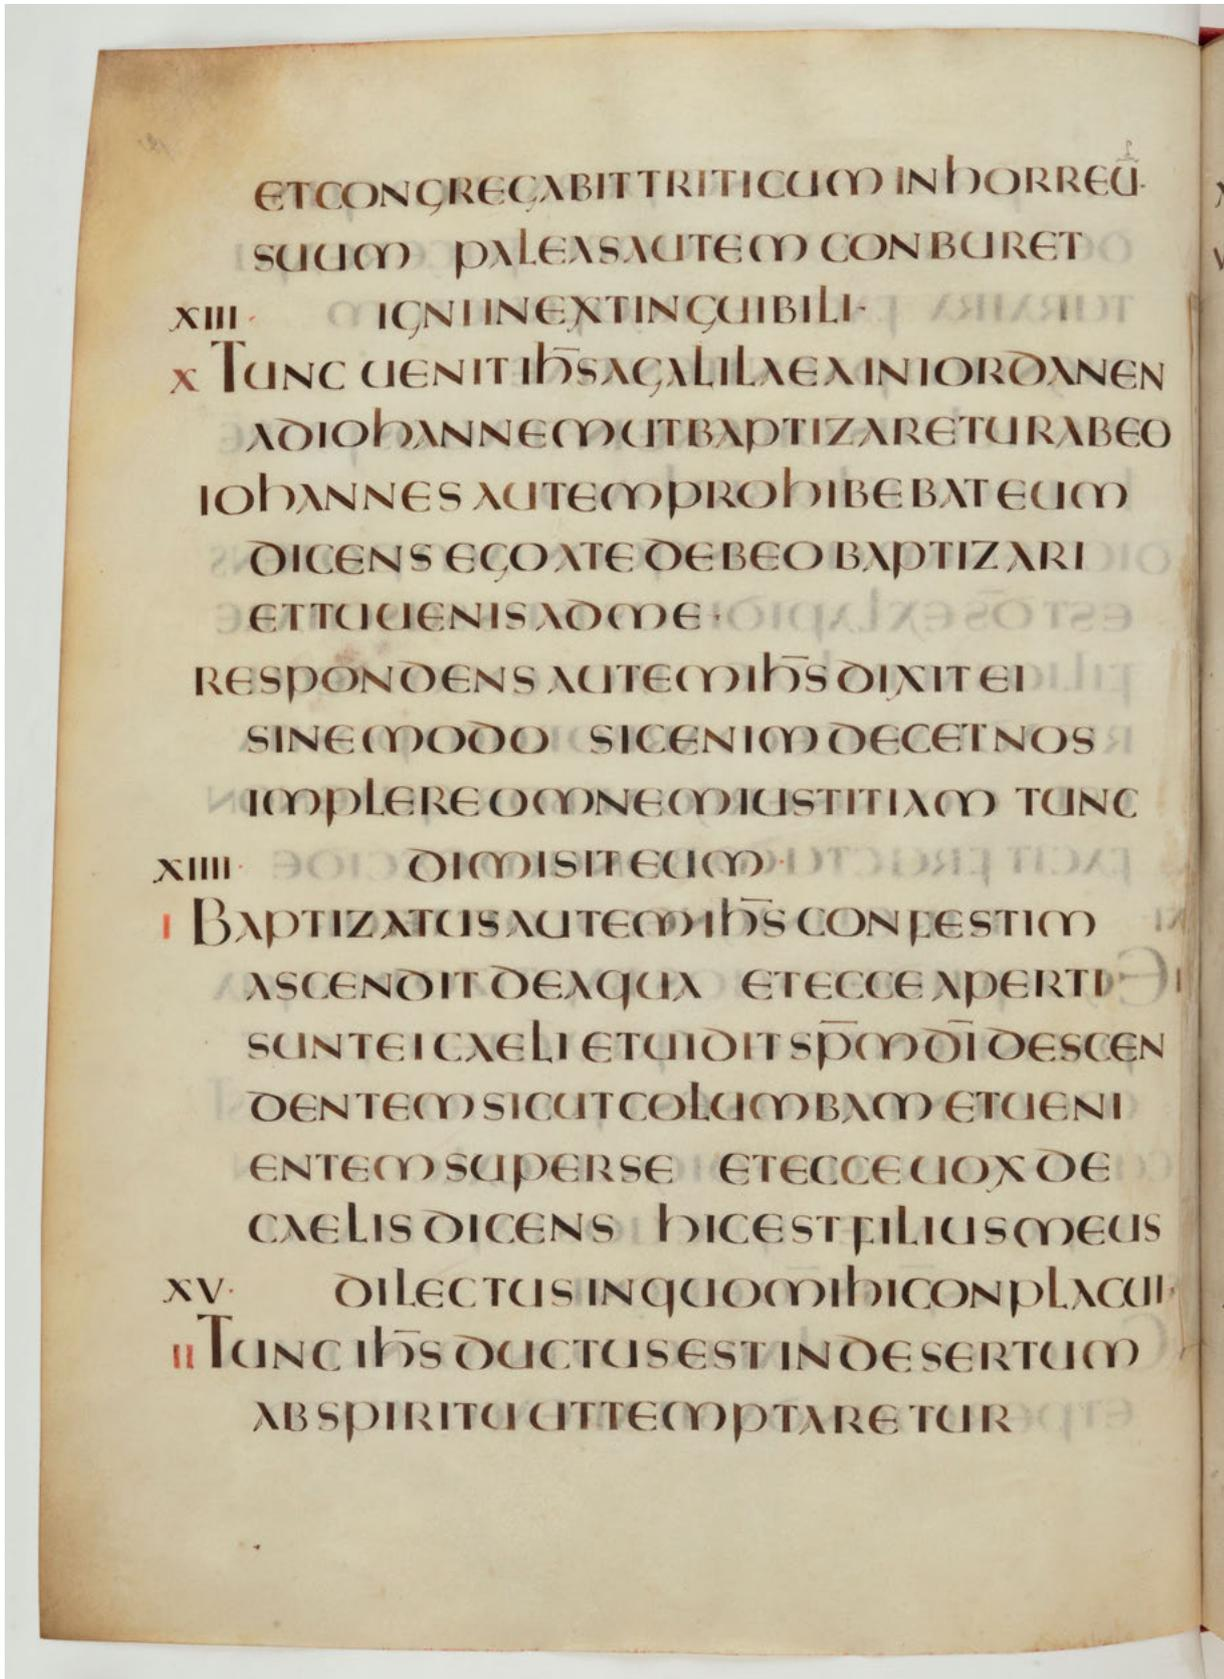 ETCONGREGABITTRITICUM INHORREŪ·
SUUM PALEASAUTEM CONBURET
XIII· IGNIINEXTINGUIBILI·
X TUNC UENITIHS̄AGALILAEAINIORDANEN
ADIOHANNEMUTBAPTIZARETURABEO
IOHANNESAUTEMPROHIBEBATEUM
DICENSEGOATEDEBEOBAPTIZARI
ETTUUENISADME·
RESPONDENSAUTEMIHS̄DIXITEI
SINEMODO SICENIMDECETNOS
IMPLEREOMNEMIUSTITIAM TUNC
XIIII· DIMISITEUM·
I BAPTIZATUSAUTEMIHS̄CONFESTIM
ASCENDITDEAQUA ETECCEAPERTI
SUNTEICAELIETUIDITSP̄MDĪDESCEN
DENTEMSICUTCOLUMBAMETUENI
ENTEMSUPERSE ETECCEUOXDE
CAELISDICENS HICESTFILIUSMEUS
XV· DILECTUSINQUOMIHICONPLACUI·
II TUNCIHS̄DUCTUSESTINDESERTUM
ABSPIRITUUTTEMPTARETUR